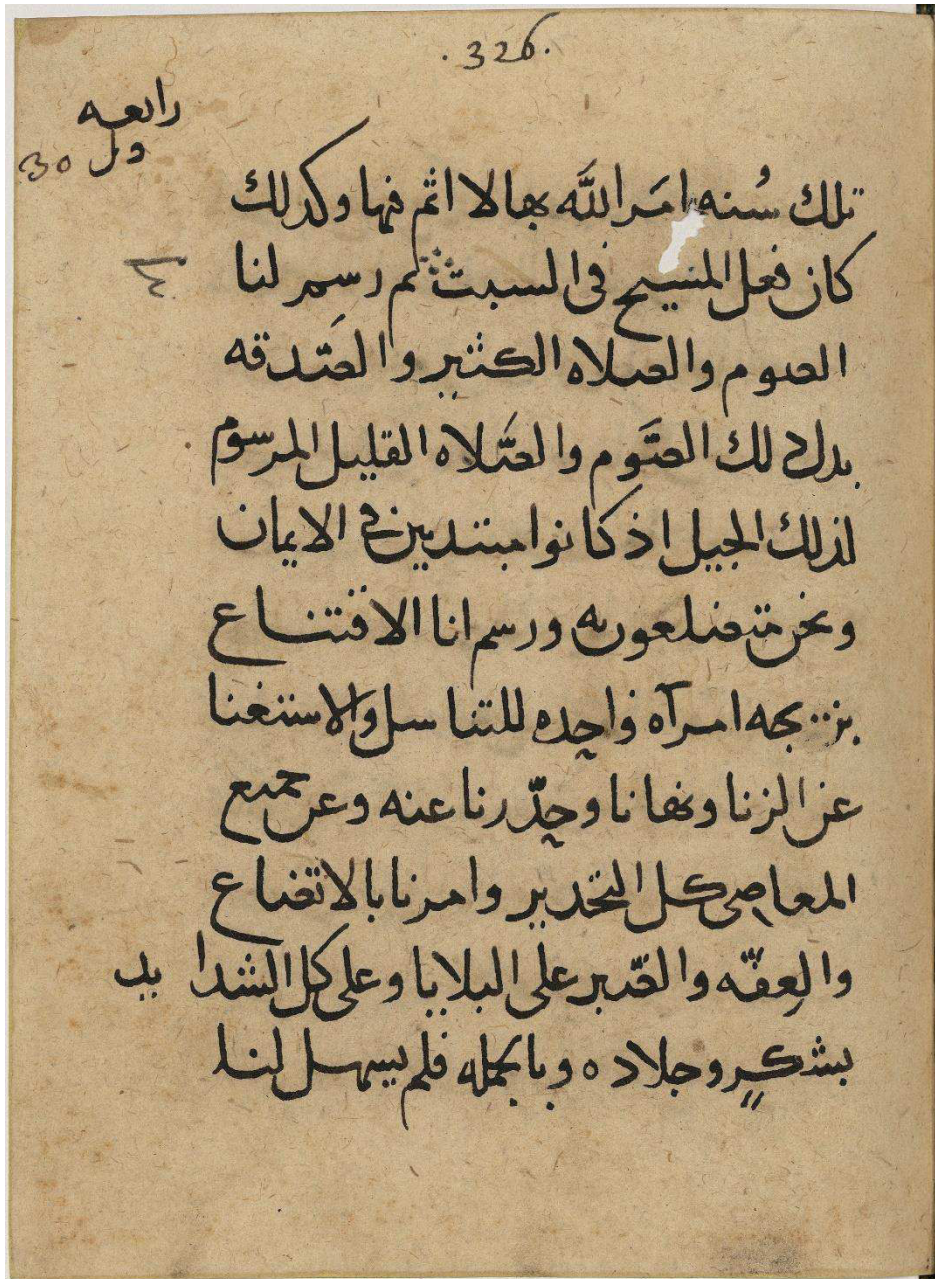 .326.
رابعه
ول
30
تلك سُنه امَر اللَّه بها لا اثم فيها وكدلك
كان فعل المسيح فى السبت ثم رسم لنا
الصوم والصلاه الكثير والصَدقه
بدل دلك الصَوم والصَلاه القليل المرسوم
لذلك الجيل اذ كانوا مبتديين فى الايمان
ونحن متضلعون به ورسم لنا الاقتناع
بزيجه امرآه واحده للتناسل والاستغنا
عن الزنا ونهانا وحدّرنا عنه وعن جميع
المعاصى كل التحدير وامرنا بالاتضاع
والعفّه والصّبر على البلايا وعلى كل الشدايد
بشكرٍ وجلاده وبالجمله فلم يسهل لنا